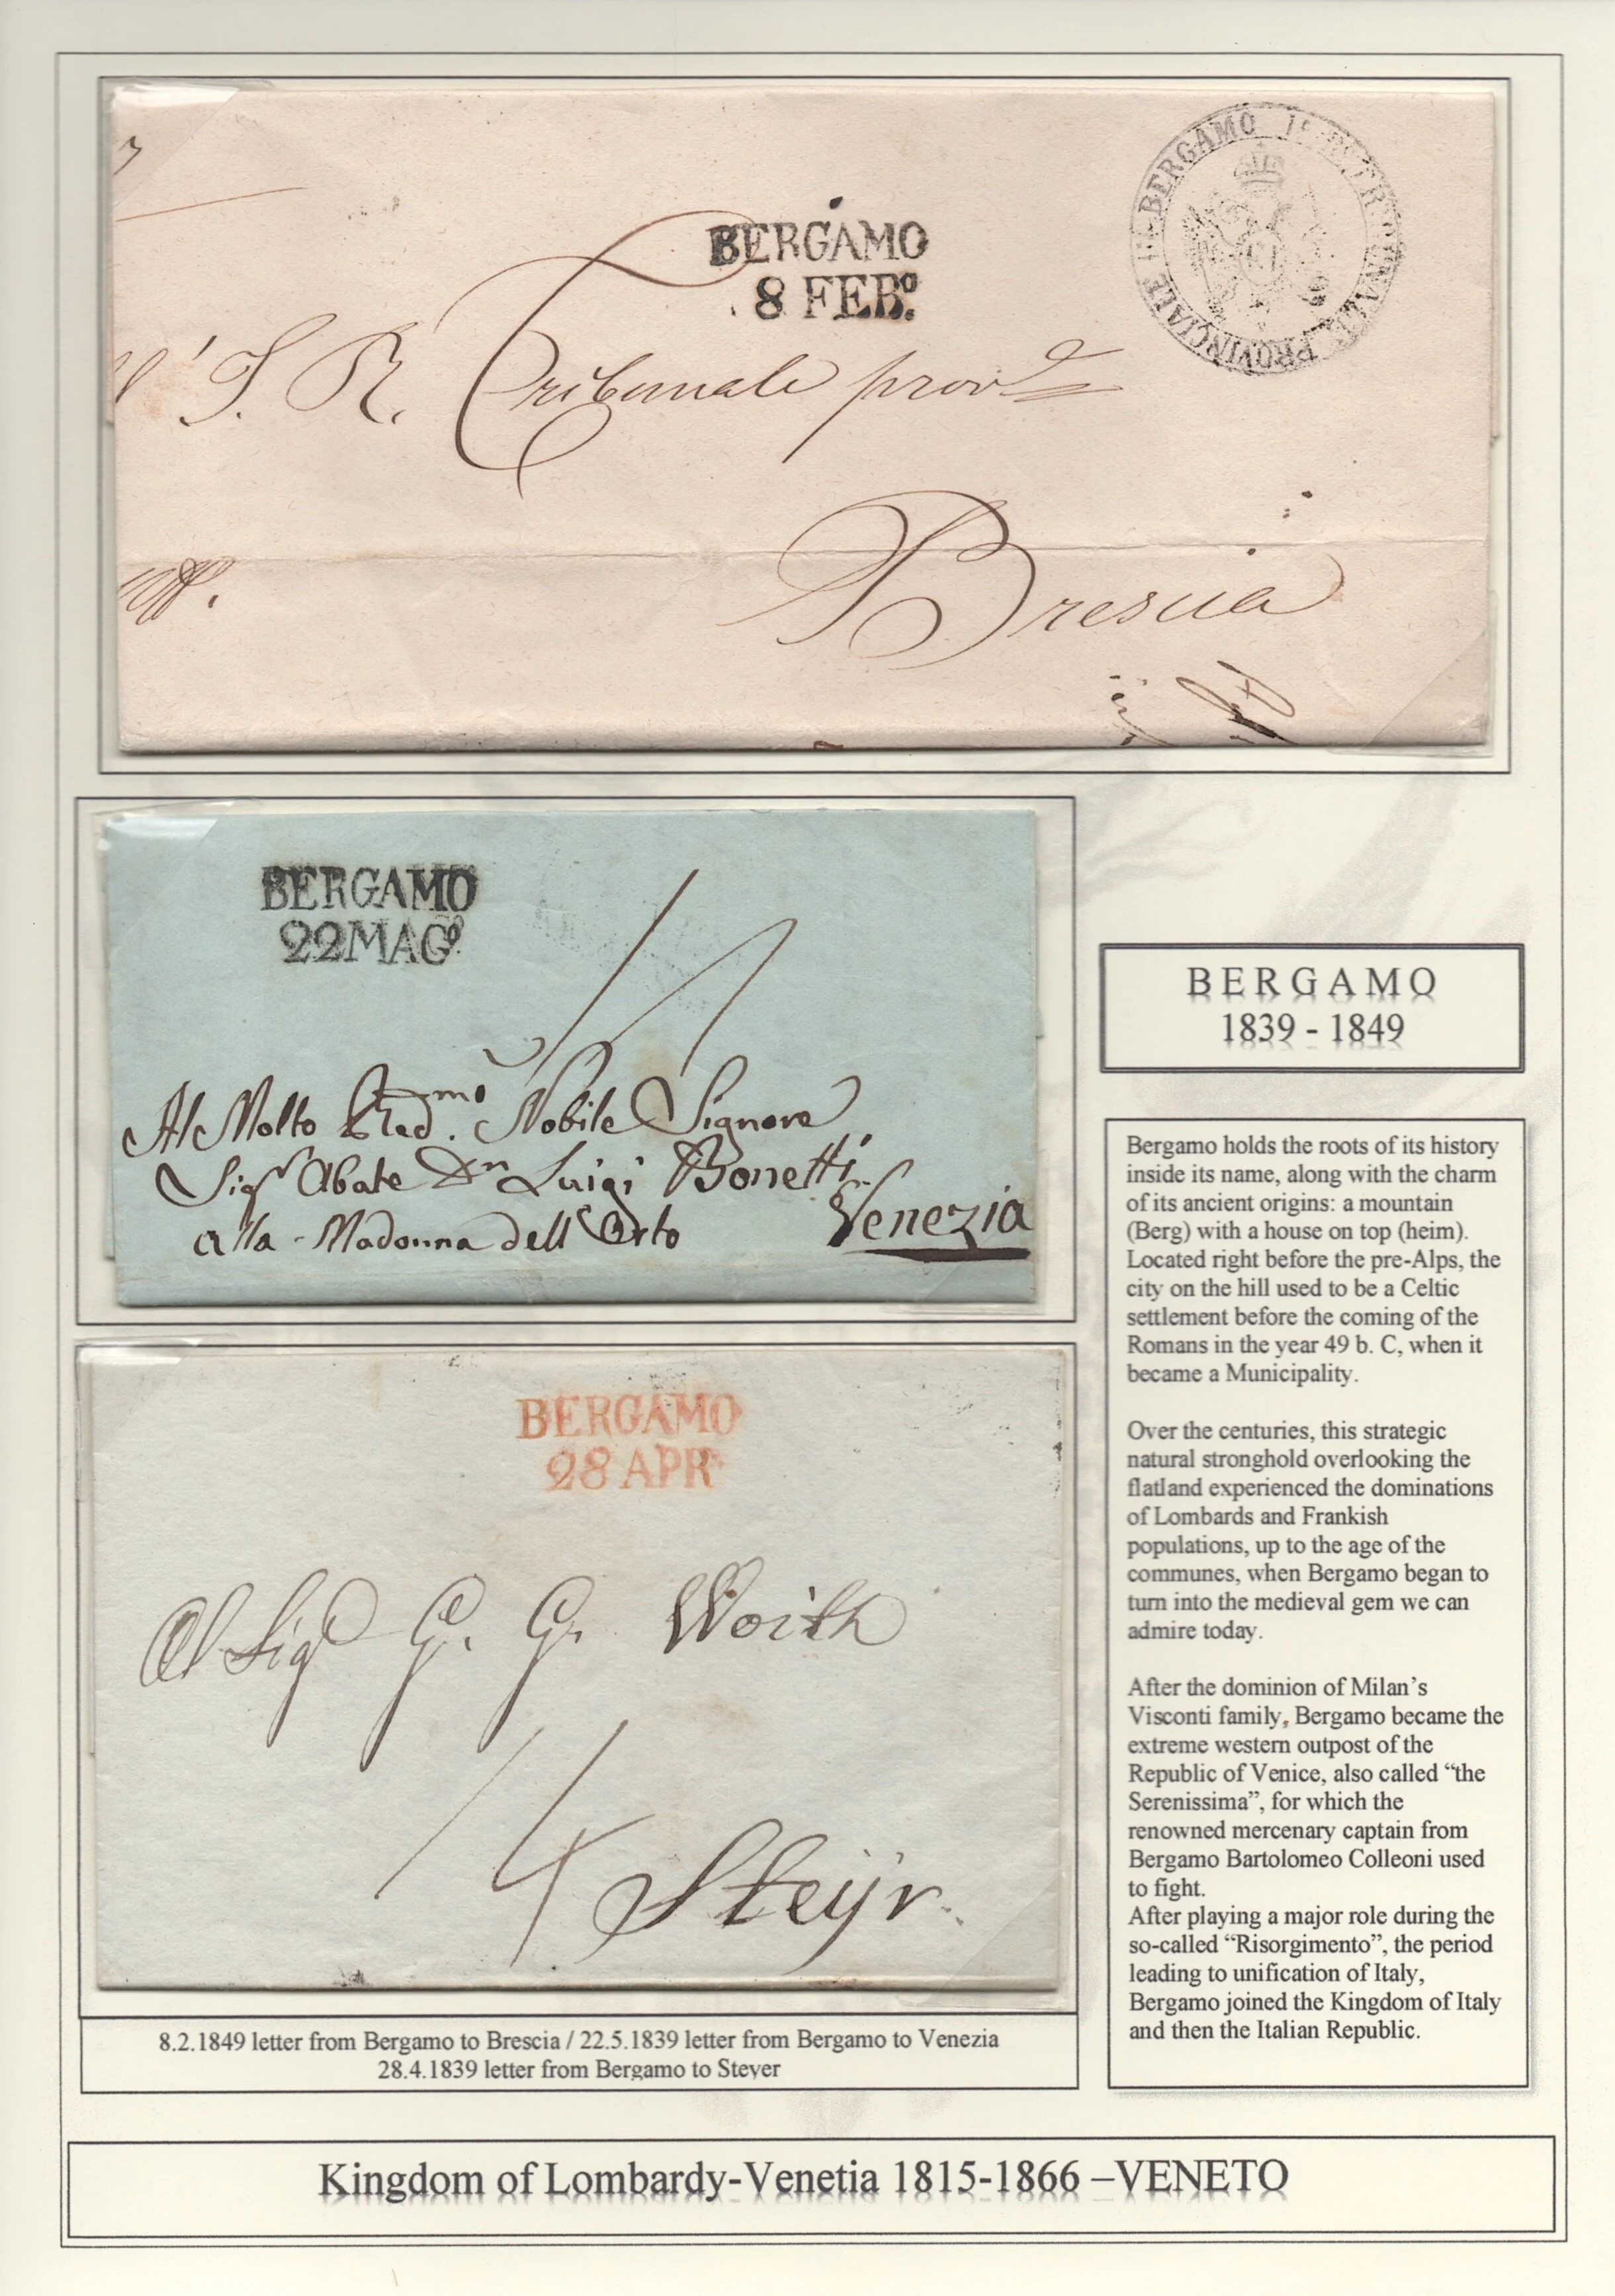 BERGAMO
8 FEBº.
PROVINCIALE DI BERGAMO
I. R. Tribunale prov.le
Brescia
BERGAMO
22 MAGº.
Al Molto Rev.d mo Nobile Signore
Sigr Abate Dn Luigi Bonetti
alla Madonna dell'Orto
Venezia
BERGAMO
28 APR
Al Sigr G. G. Woith
Steijr.
BERGAMO
1839 - 1849
Bergamo holds the roots of its history
inside its name, along with the charm
of its ancient origins: a mountain
(Berg) with a house on top (heim).
Located right before the pre-Alps, the
city on the hill used to be a Celtic
settlement before the coming of the
Romans in the year 49 b. C, when it
became a Municipality.
Over the centuries, this strategic
natural stronghold overlooking the
flatland experienced the dominations
of Lombards and Frankish
populations, up to the age of the
communes, when Bergamo began to
turn into the medieval gem we can
admire today.
After the dominion of Milan’s
Visconti family, Bergamo became the
extreme western outpost of the
Republic of Venice, also called “the
Serenissima”, for which the
renowned mercenary captain from
Bergamo Bartolomeo Colleoni used
to fight.
After playing a major role during the
so-called “Risorgimento”, the period
leading to unification of Italy,
Bergamo joined the Kingdom of Italy
and then the Italian Republic.
8.2.1849 letter from Bergamo to Brescia / 22.5.1839 letter from Bergamo to Venezia
28.4.1839 letter from Bergamo to Steyer
Kingdom of Lombardy-Venetia 1815-1866 –VENETO